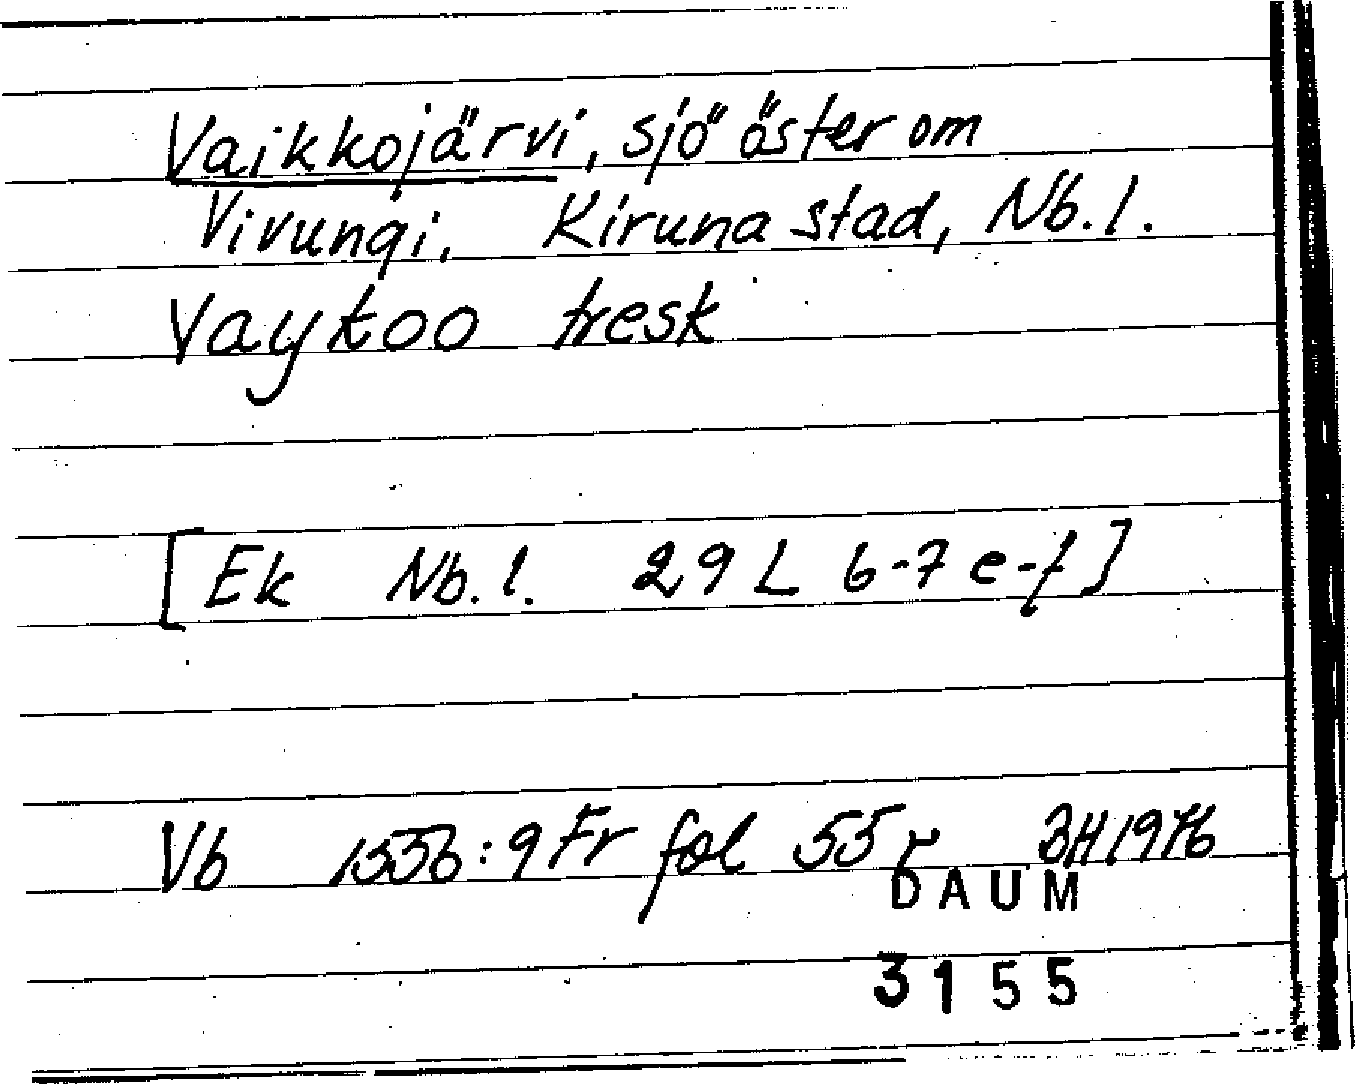 Vaikkojärvi, sjö öster om
Vivungi, Kiruna stad, Nb. l.
Vaykoo tresk
[Ek Nb. l. 29 L 6-7 e-f]
Vb 1553:9 Fr fol 55 r BH 1976
DAUM
3155